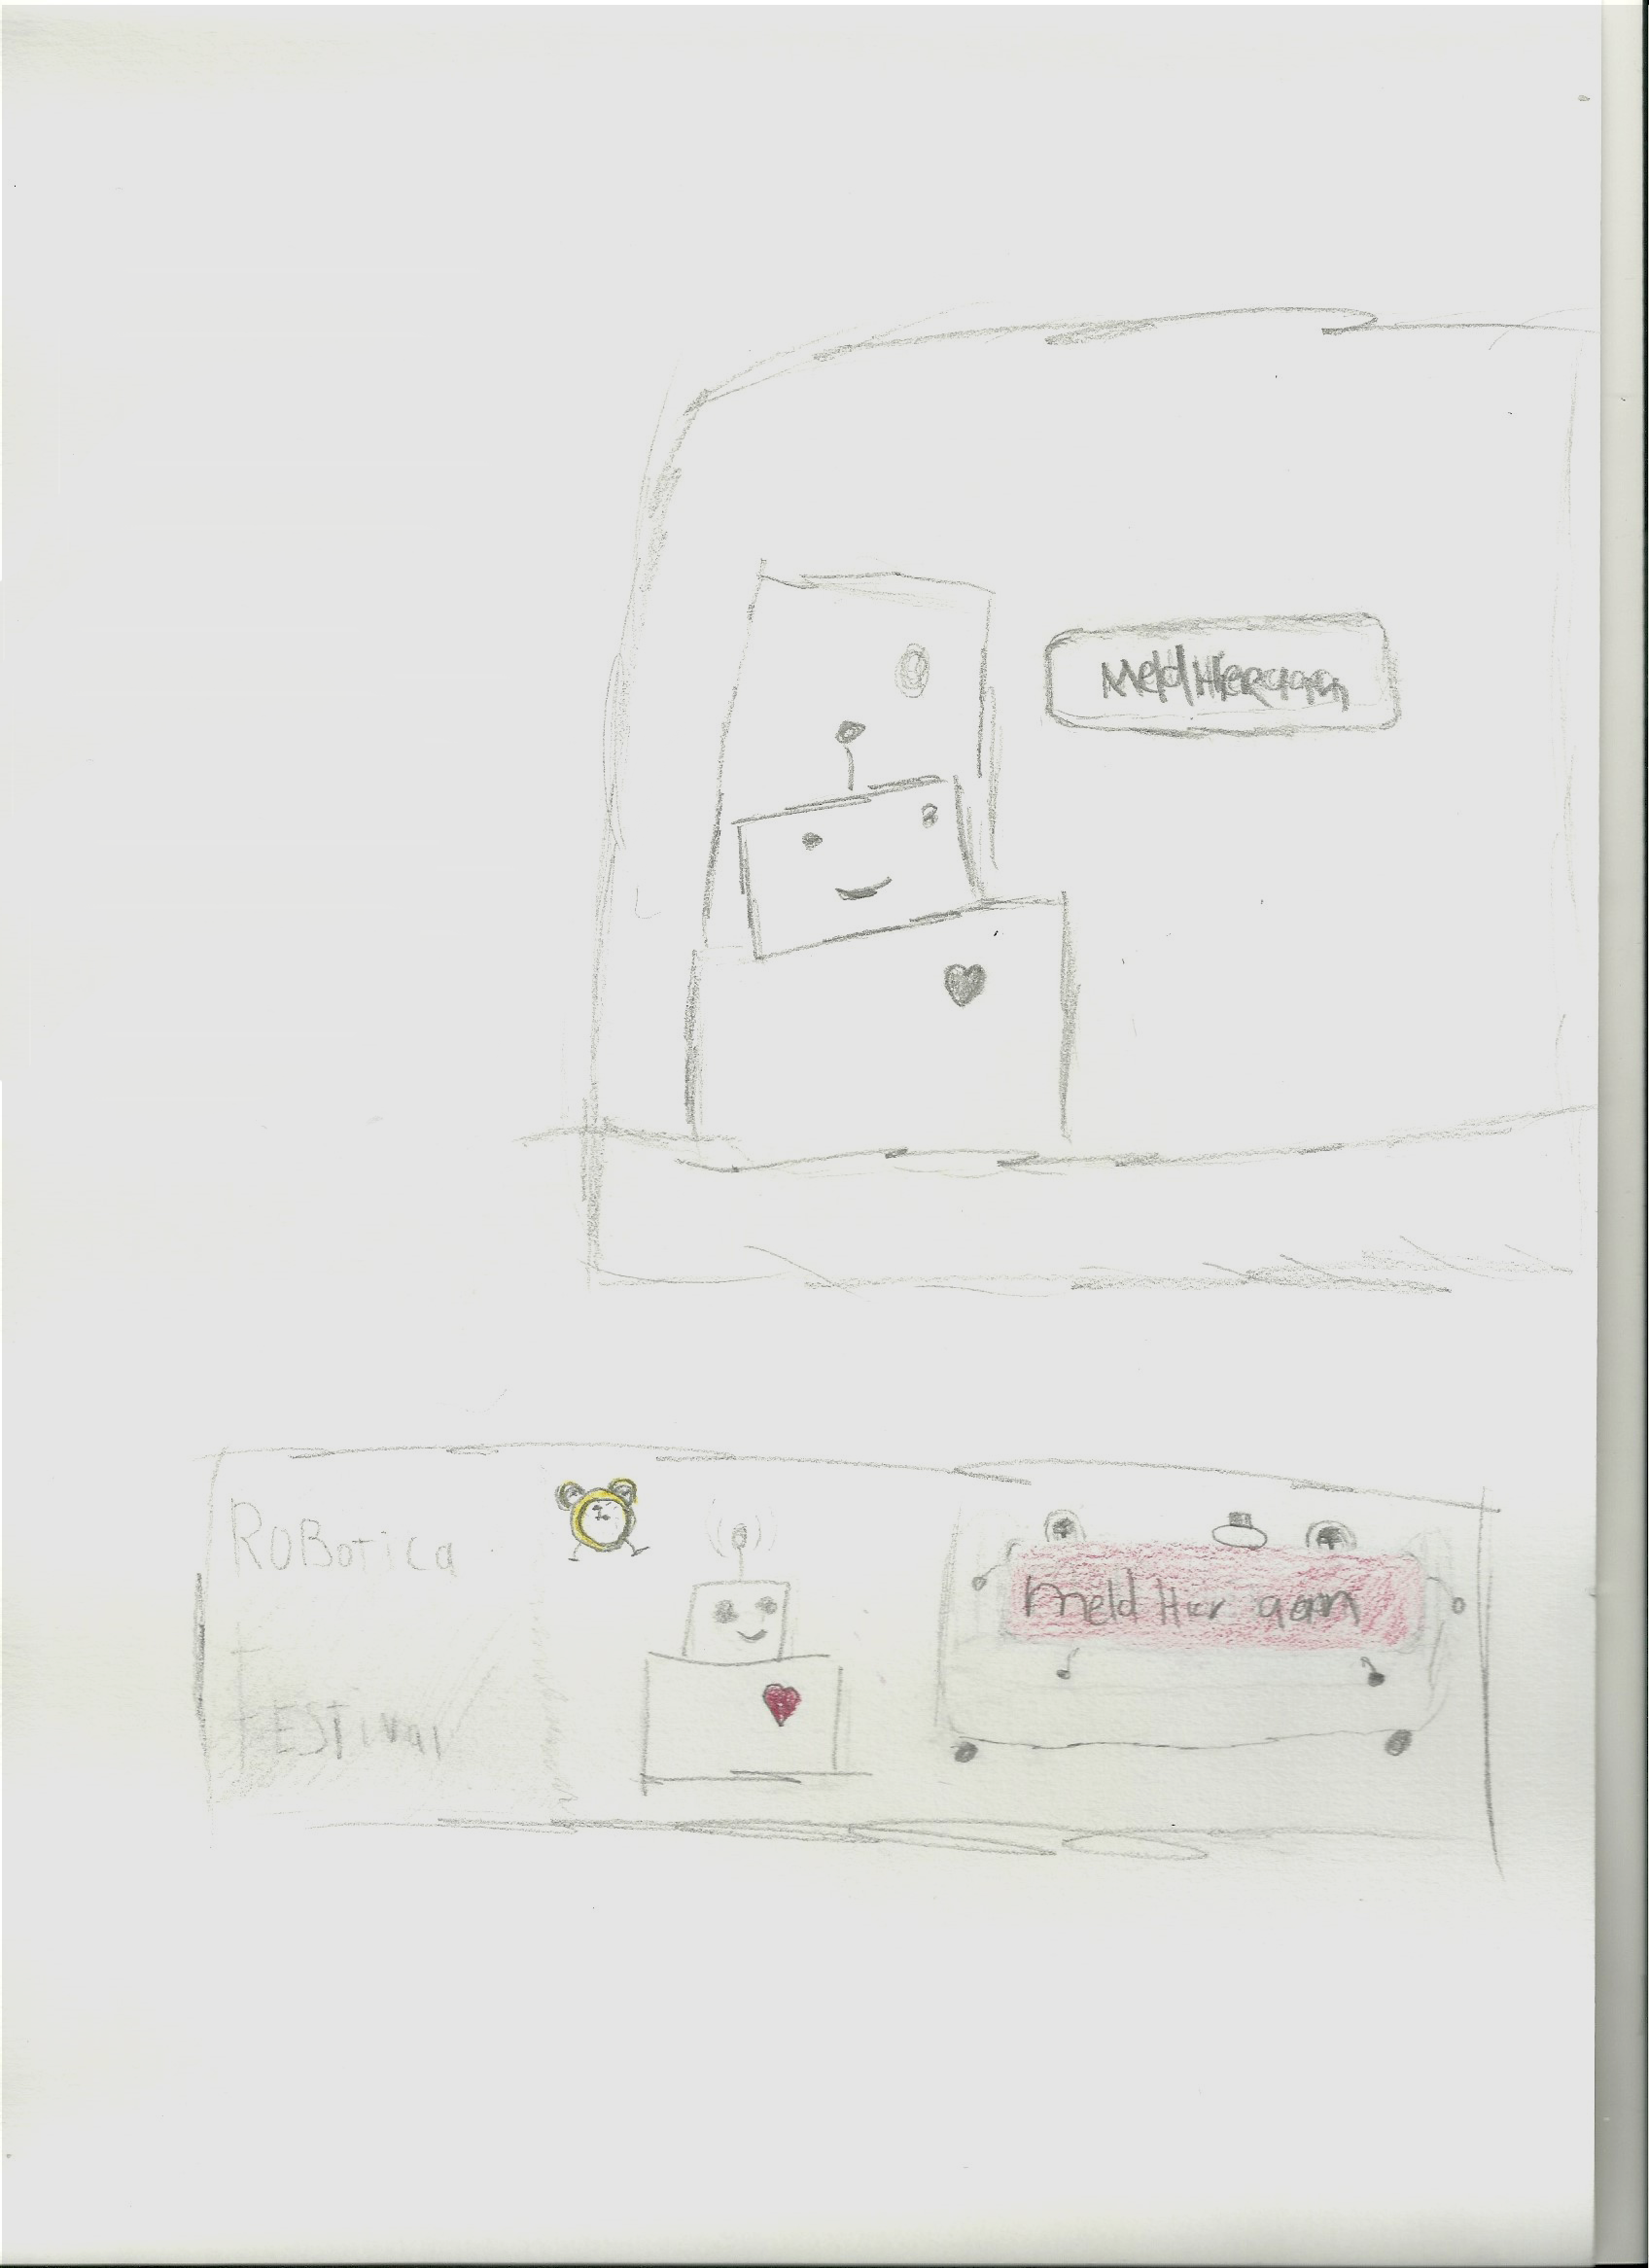 Meld Hier aan
RoBotica
FESTival
Meld Hier aan